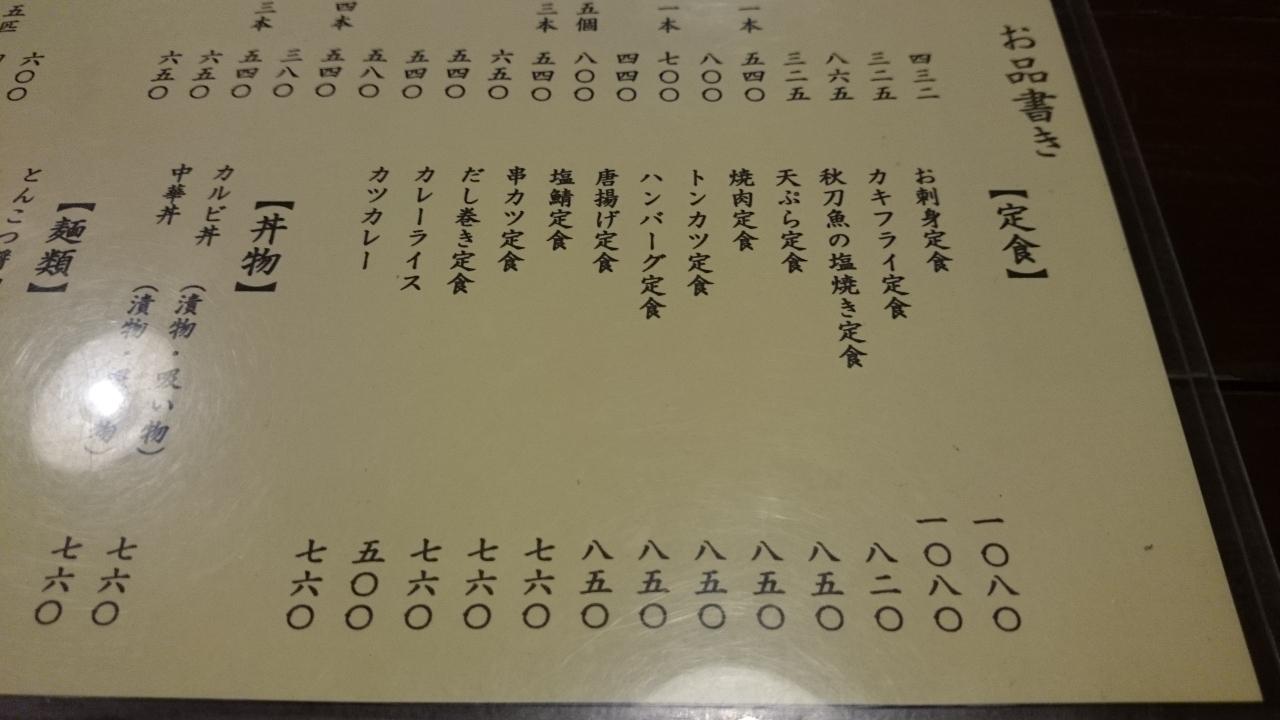 お品書き
四三二
三二五
八六五
三二五
一本 五四〇
八〇〇
一本 七〇〇
四四〇
五個 八〇〇
三本 五四〇
六五〇
五四〇
五四〇
五八〇
四本 五四〇
三八〇
三本 五四〇
六五〇
六五〇
五匹 六〇〇
【定食】
お刺身定食 一〇八〇
カキフライ定食 一〇八〇
秋刀魚の塩焼き定食 八二〇
天ぷら定食 八五〇
焼肉定食 八五〇
トンカツ定食 八五〇
ハンバーグ定食 八五〇
唐揚げ定食 八五〇
塩鯖定食 七六〇
串カツ定食 七六〇
だし巻き定食 七六〇
カレーライス 五〇〇
カツカレー 七六〇
【丼物】
カルビ丼 (漬物・吸い物) 七六〇
中華丼 (漬物・吸い物) 七六〇
【麺類】
とんこつ